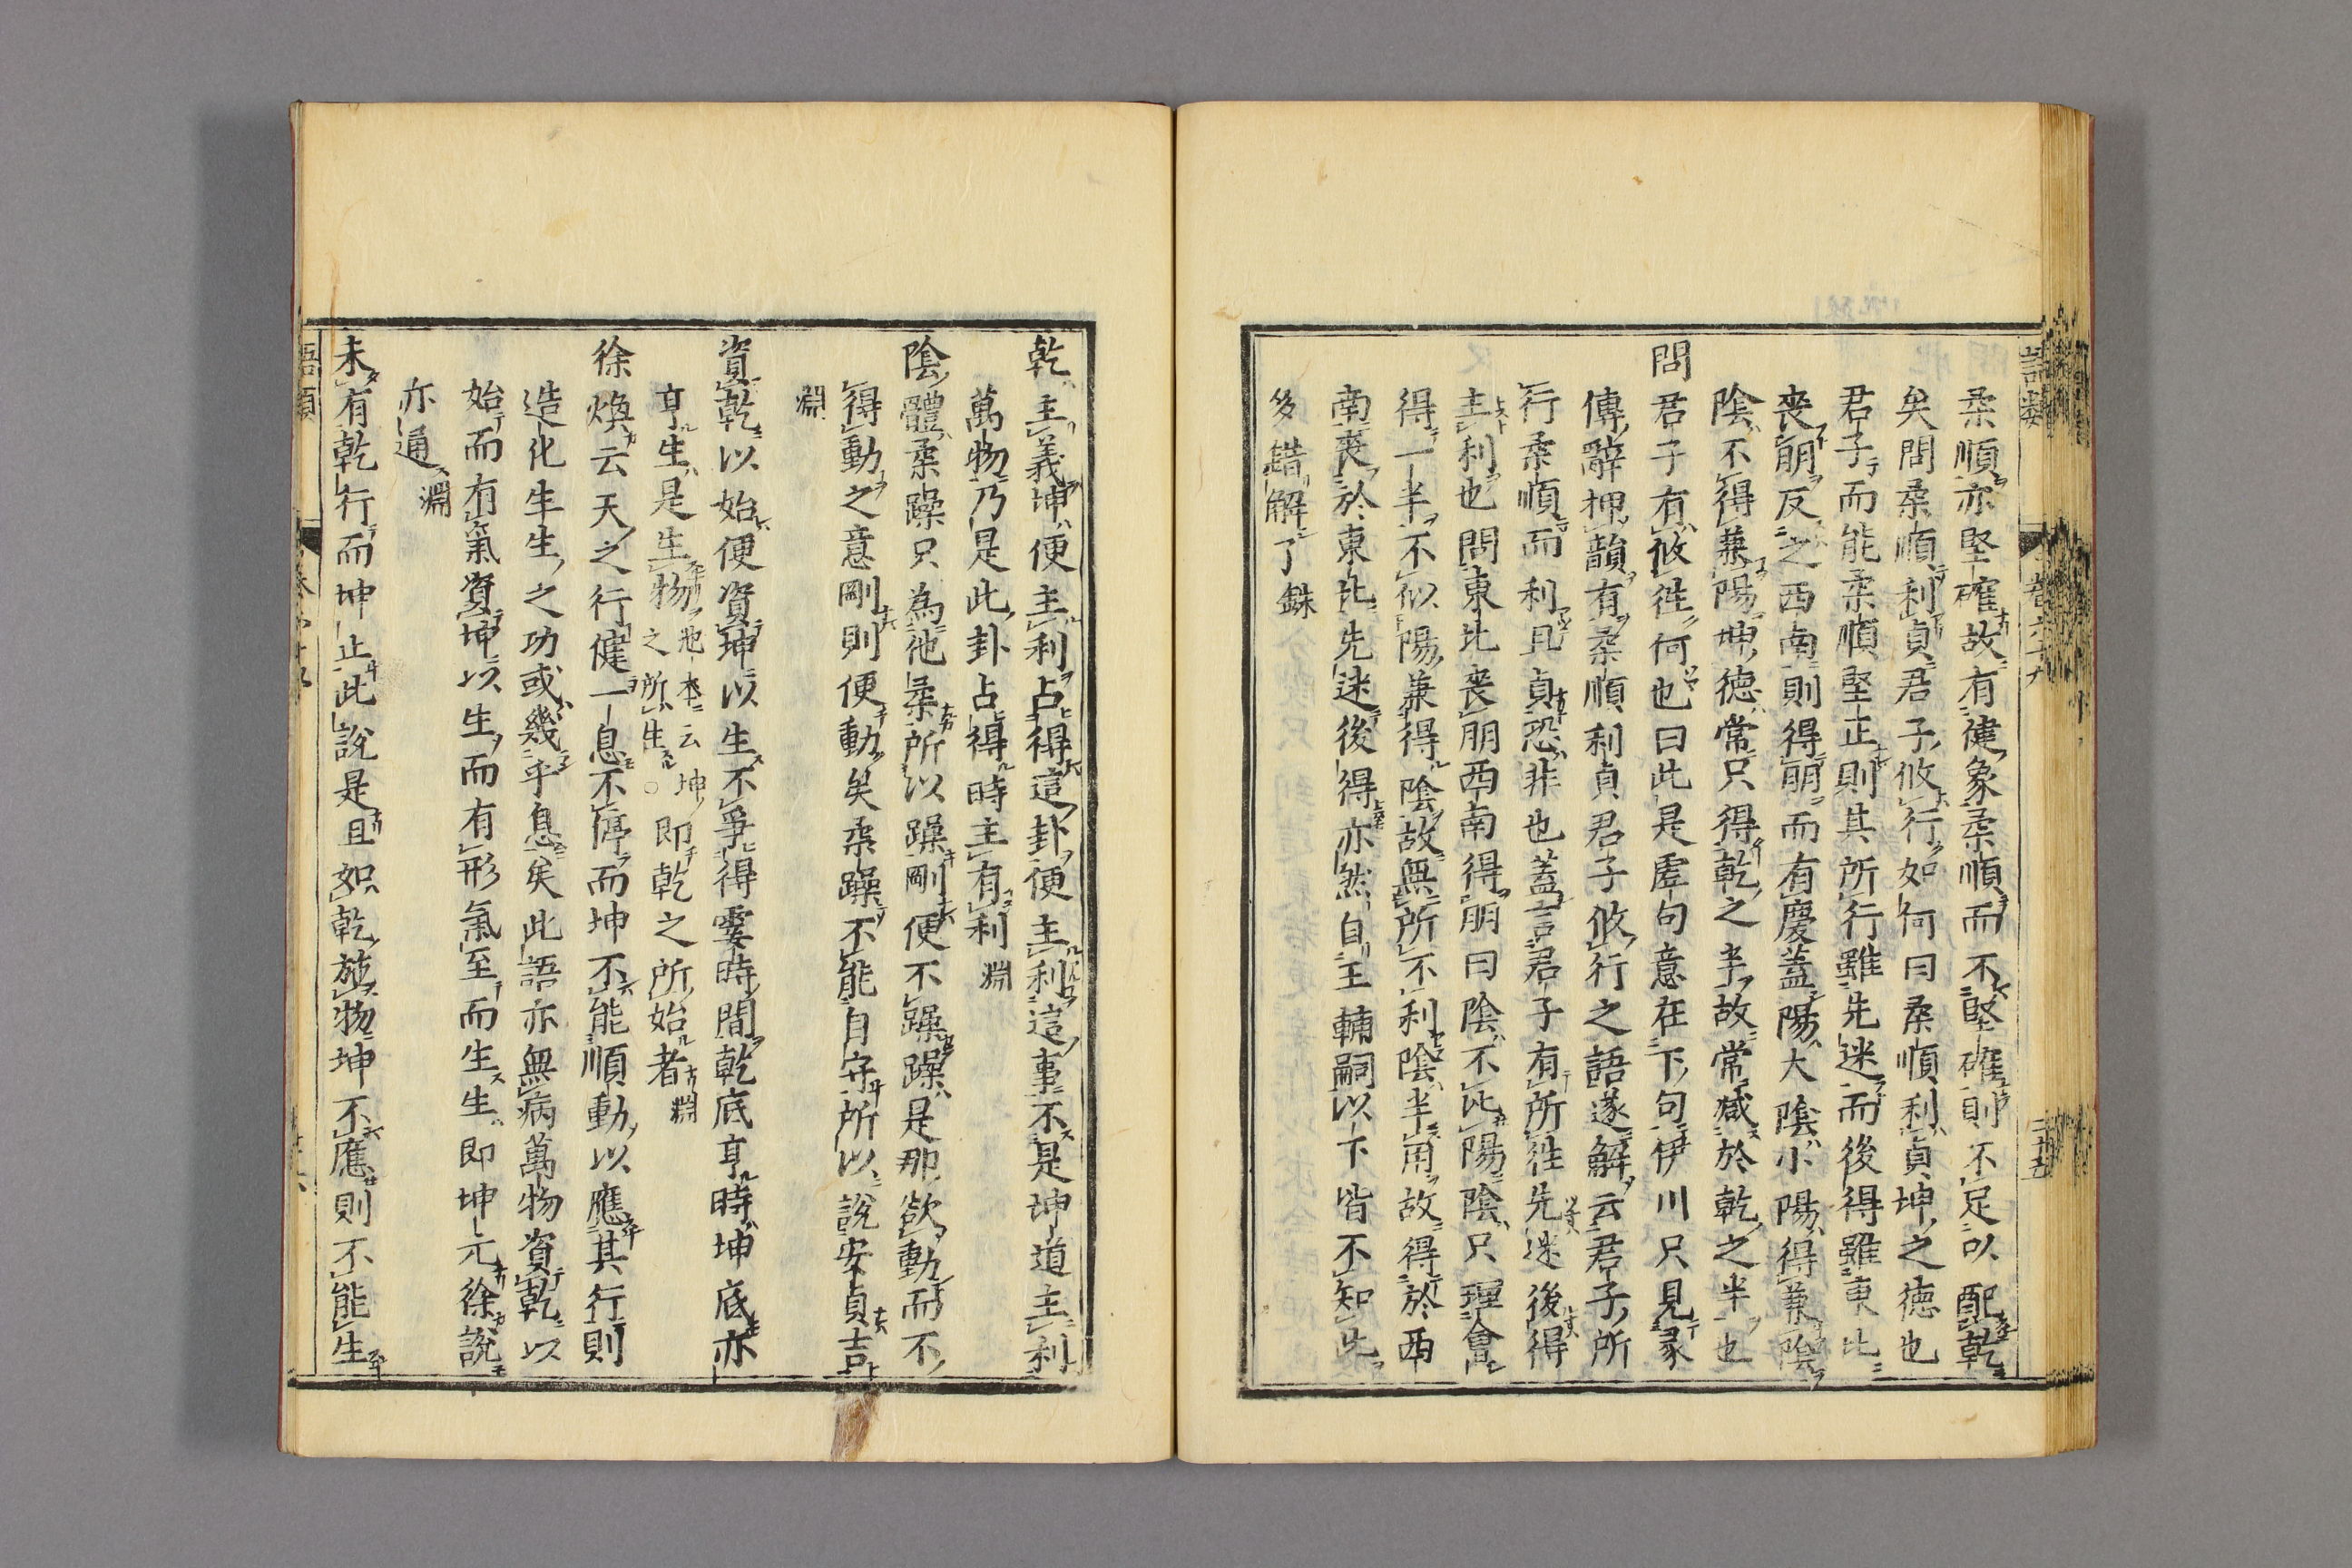 柔順亦堅確故有健象柔順而不堅確則不足以配乾
矣問柔順利貞君子攸行如何曰柔順利貞坤之德也
君子而能柔順堅正則其所行雖先迷而後得雖東北
喪朋反之西南則得朋而有慶蓋陽大陰小陽得兼陰
陰不得兼陽坤德常只得乾之半故常減於乾之半也
問君子有攸往何也曰此是虛句意在下句伊川只見彖
傳辭押韻有柔順利貞君子攸行之語遂解云君子所
行柔順而利且貞恐非也蓋言君子有所往先迷後得
主利也問東北喪朋西南得朋曰陰不比陽陰只理會
得一半不似陽兼得陰故無所不利陰半用故得於西
南喪於東北先迷後得亦然自王輔嗣以下皆不知此
多錯解了銖
乾主義坤便主利占得這卦便主利這事不是坤道主利
萬物乃是此卦占得時主有利淵
陰體柔躁只為他柔所以躁剛便不躁躁是那欲動而不
得動之意剛則便動矣柔躁不能自守所以說安貞吉
淵
資乾以始便資坤以生不爭得霎時間乾底亨時坤底亦
亨生是生物池本云坤之所生○即乾之所始者淵
徐煥云天之行健一息不停而坤不能順動以應其行則
造化生生之功或幾乎息矣此語亦無病萬物資乾以
始而有氣資坤以生而有形氣至而生生即坤元徐說
亦通淵
未有乾行而坤止此說是且如乾施物坤不應則不能生
語類